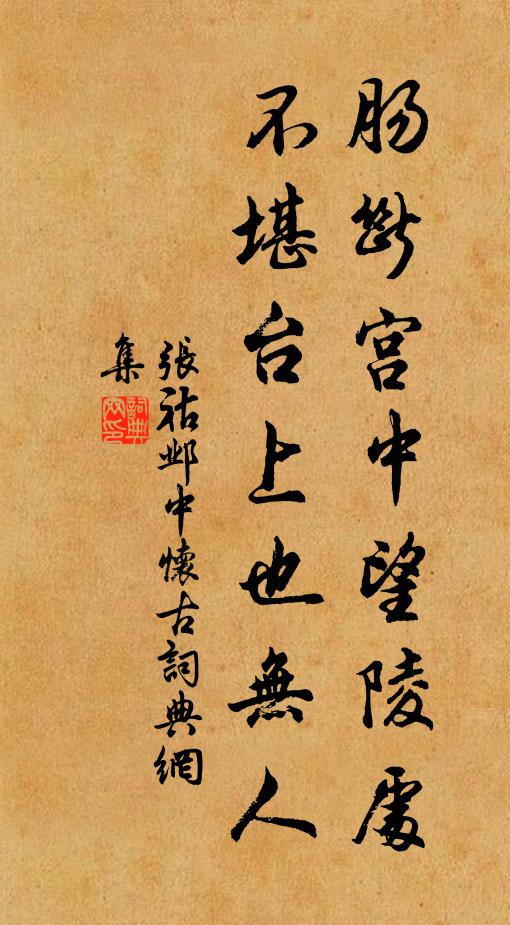 肠斷宫中望陵處
不堪台上也無人
張祜邺中懷古詞典網
集
詞典
网印